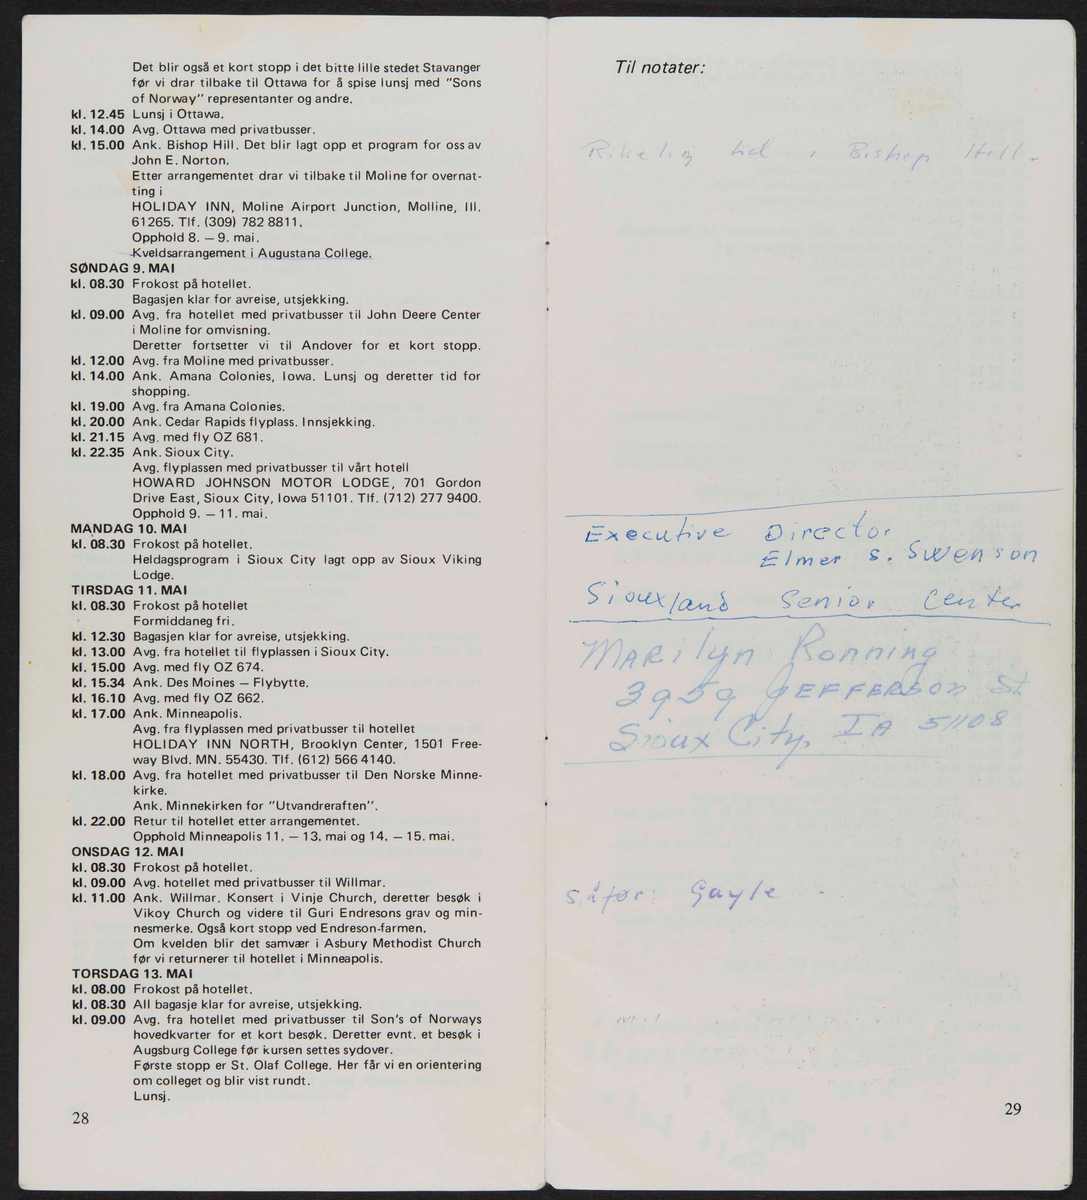 Det blir også et kort stopp i det bitte lille stedet Stavanger
før vi drar tilbake til Ottawa for å spise lunsj med "Sons
of Norway" representanter og andre.
kl. 12.45 Lunsj i Ottawa.
kl. 14.00 Avg. Ottawa med privatbusser.
kl. 15.00 Ank. Bishop Hill. Det blir lagt opp et program for oss av
John E. Norton.
Etter arrangementet drar vi tilbake til Moline for overnat-
ting i
HOLIDAY INN, Moline Airport Junction, Molline, Ill.
61265. Tlf. (309) 782 8811.
Opphold 8. — 9. mai.
Kveldsarrangement i Augustana College.
SØNDAG 9. MAI
kl. 08.30 Frokost på hotellet.
Bagasjen klar for avreise, utsjekking.
kl. 09.00 Avg. fra hotellet med privatbusser til John Deere Center
i Moline for omvisning.
Deretter fortsetter vi til Andover for et kort stopp.
kl. 12.00 Avg. fra Moline med privatbusser.
kl. 14.00 Ank. Amana Colonies, Iowa. Lunsj og deretter tid for
shopping.
kl. 19.00 Avg. fra Amana Colonies.
kl. 20.00 Ank. Cedar Rapids flyplass. Innsjekking.
kl. 21.15 Avg. med fly OZ 681.
kl. 22.35 Ank. Sioux City.
Avg. flyplassen med privatbusser til vårt hotell
HOWARD JOHNSON MOTOR LODGE, 701 Gordon
Drive East, Sioux City, Iowa 51101. Tlf. (712) 277 9400.
Opphold 9. — 11. mai.
MANDAG 10. MAI
kl. 08.30 Frokost på hotellet.
Heldagsprogram i Sioux City lagt opp av Sioux Viking
Lodge.
TIRSDAG 11. MAI
kl. 08.30 Frokost på hotellet
Formiddaneg fri.
kl. 12.30 Bagasjen klar for avreise, utsjekking.
kl. 13.00 Avg. fra hotellet til flyplassen i Sioux City.
kl. 15.00 Avg. med fly OZ 674.
kl. 15.34 Ank. Des Moines — Flybytte.
kl. 16.10 Avg. med fly OZ 662.
kl. 17.00 Ank. Minneapolis.
Avg. fra flyplassen med privatbusser til hotellet
HOLIDAY INN NORTH, Brooklyn Center, 1501 Free-
way Blvd. MN. 55430. Tlf. (612) 566 4140.
kl. 18.00 Avg. fra hotellet med privatbusser til Den Norske Minne-
kirke.
Ank. Minnekirken for "Utvandreraften".
kl. 22.00 Retur til hotellet etter arrangementet.
Opphold Minneapolis 11. — 13. mai og 14. — 15. mai.
ONSDAG 12. MAI
kl. 08.30 Frokost på hotellet.
kl. 09.00 Avg. hotellet med privatbusser til Willmar.
kl. 11.00 Ank. Willmar. Konsert i Vinje Church, deretter besøk i
Vikoy Church og videre til Guri Endresons grav og min-
nesmerke. Også kort stopp ved Endreson-farmen.
Om kvelden blir det samvær i Asbury Methodist Church
før vi returnerer til hotellet i Minneapolis.
TORSDAG 13. MAI
kl. 08.00 Frokost på hotellet.
kl. 08.30 All bagasje klar for avreise, utsjekking.
kl. 09.00 Avg. fra hotellet med privatbusser til Son's of Norways
hovedkvarter for et kort besøk. Deretter evnt. et besøk i
Augsburg College før kursen settes sydover.
Første stopp er St. Olaf College. Her får vi en orientering
om colleget og blir vist rundt.
Lunsj.
28
Til notater:
i Bishop Hill.
Executive Director
Elmer S. Swenson
Siouxland Senior Center
MARilyn Ronning
3959 JEFFERSON St
Sioux City, IA 51108
Såfør: Gayle
29